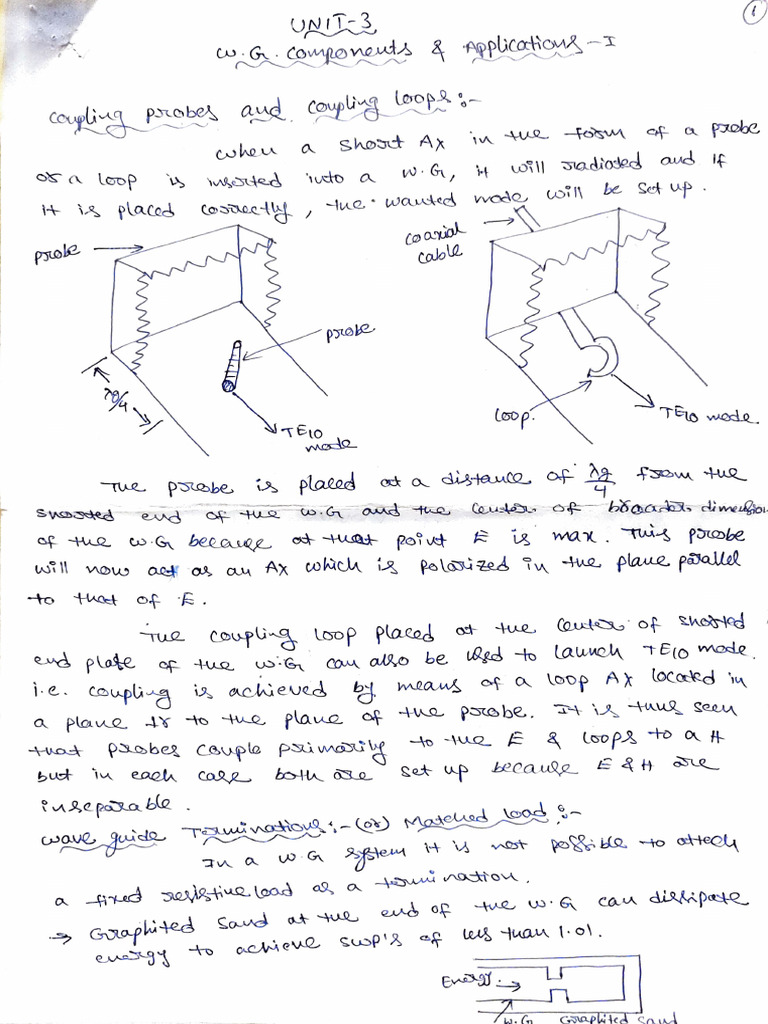 1
UNIT-3
W.G. Components & Applications-I
Coupling probes and coupling loops:-
When a short Ax in the form of a probe
or a loop is inserted into a W.G, it will radiated and if
it is placed correctly, the wanted mode will be set up.
probe
coaxial
cable
probe
λg/4
TE10
mode
loop.
TE10 mode.
The probe is placed at a distance of λg/4 from the
shorted end of the W.G and the center of broader dimension
of the W.G because at that point E is max. This probe
will now act as an Ax which is polarized in the plane parallel
to that of E.
The coupling loop placed at the center of shorted
end plate of the W.G can also be used to launch TE10 mode.
i.e. coupling is achieved by means of a loop Ax located in
a plane ⊥r to the plane of the probe. It is thus seen
that probes couple primarily to the E & loops to a H
but in each case both are set up because E & H are
inseparable.
Wave guide Terminations:- (or) Matched load:-
In a W.G system it is not possible to attach
a fixed resistive load as a termination.
→ Graphited Sand at the end of the W.G can dissipate
energy to achieve swp's of less than 1.01.
Energy.
W.G Graphited Sand